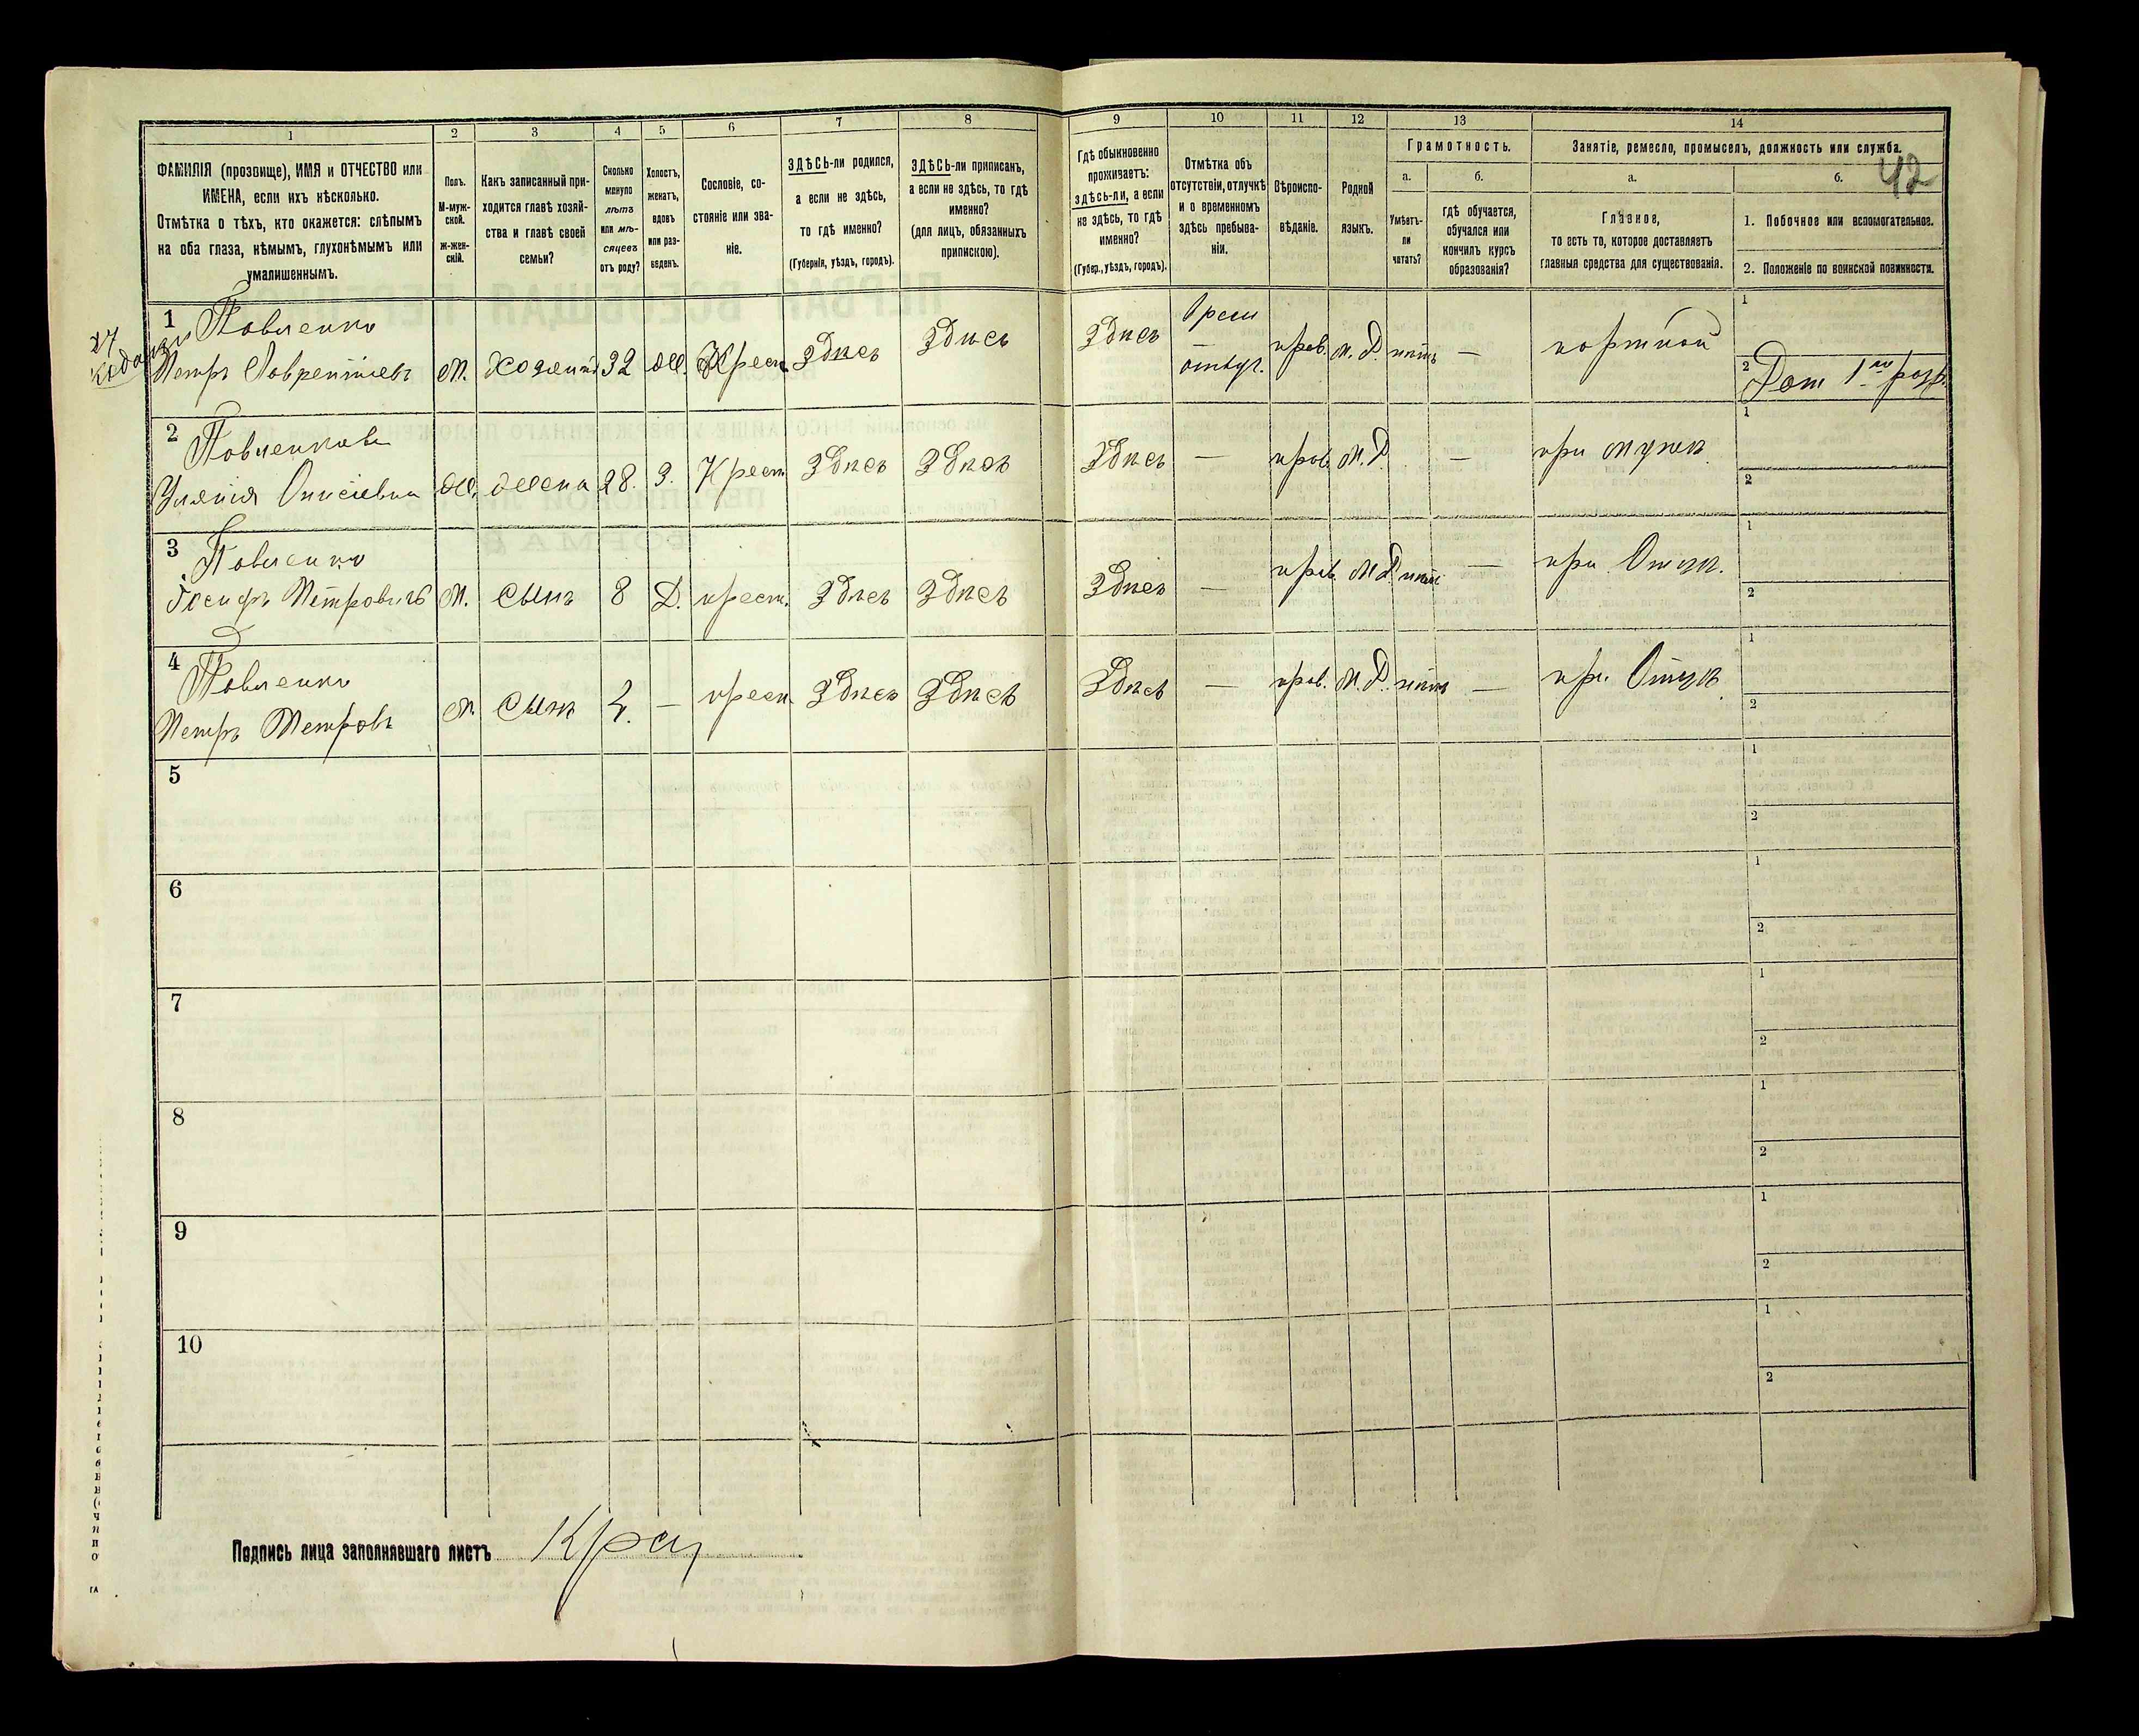 1 2 3 4 5 6 7 8 9 10 11 12 13 14
ФАМИЛІЯ (прозвище), ИМЯ и ОТЧЕСТВО или
ИМЕНА, если ихъ нѣсколько.
Отмѣтка о тѣхъ, кто окажется: слѣпымъ
на оба глаза, нѣмымъ, глухонѣмымъ или
умалишеннымъ.
Полъ.
М-муж-
ской.
Ж-жен-
скій.
Какъ записанный при-
ходится главѣ хозяй-
ства и главѣ своей
семьи?
Сколько
минуло
лѣтъ
или мѣ-
сяцевъ
отъ роду?
Холостъ,
женатъ,
вдовъ
или раз-
веденъ.
Сословіе, со-
стояніе или зва-
ніе.
ЗДѢСЬ-ли родился,
а если не здѣсь,
то гдѣ именно?
(Губернія, уѣздъ, городъ).
ЗДѢСЬ-ли приписанъ,
а если не здѣсь, то гдѣ
именно?
(для лицъ, обязанныхъ
припискою).
Гдѣ обыкновенно
проживаетъ:
здѣсь-ли, а если
не здѣсь, то гдѣ
именно?
(Губер., уѣздъ, городъ).
Отмѣтка объ
отсутствіи, отлучкѣ
и о временномъ
здѣсь пребыва-
ніи.
Вѣроиспо-
вѣданіе.
Родной
языкъ.
Грамотность.
а.
Умѣетъ-
ли
читать?
б.
гдѣ обучается,
обучался или
кончилъ курсъ
образованія?
Занятіе, ремесло, промыселъ, должность или служба.
42
а.
Главное,
то есть то, которое доставляетъ
главныя средства для существованія.
б.
1. Побочное или вспомогательное.
2. Положеніе по воинской повинности.
1 Павленко
Петръ Лаврентіевъ М. Хозяинъ 32 Ж. Крест. Здѣсь Здѣсь Здѣсь отлуч. прав. М. Р. нѣтъ — портной 1
2
2 Павленкова
Улянія М. жена 28. З. Крест. Здѣсь Здѣсь Здѣсь — прав. М. Р. — при мужѣ 1
2
3 Павленко
Іосифъ Петровичъ М. Сынъ 8 крест. Здѣсь Здѣсь Здѣсь — прав. М. Р. нѣтъ — при Отцѣ. 1
2
4 Павленко
Петръ Петровъ М. Сынъ — крест. Здѣсь Здѣсь Здѣсь — прав. М. Р. нѣтъ — при Отцѣ 1
2
5 1
2
6 1
2
7 1
2
8 1
2
9 1
2
10 1
2
Подпись лица заполнявшаго листъ